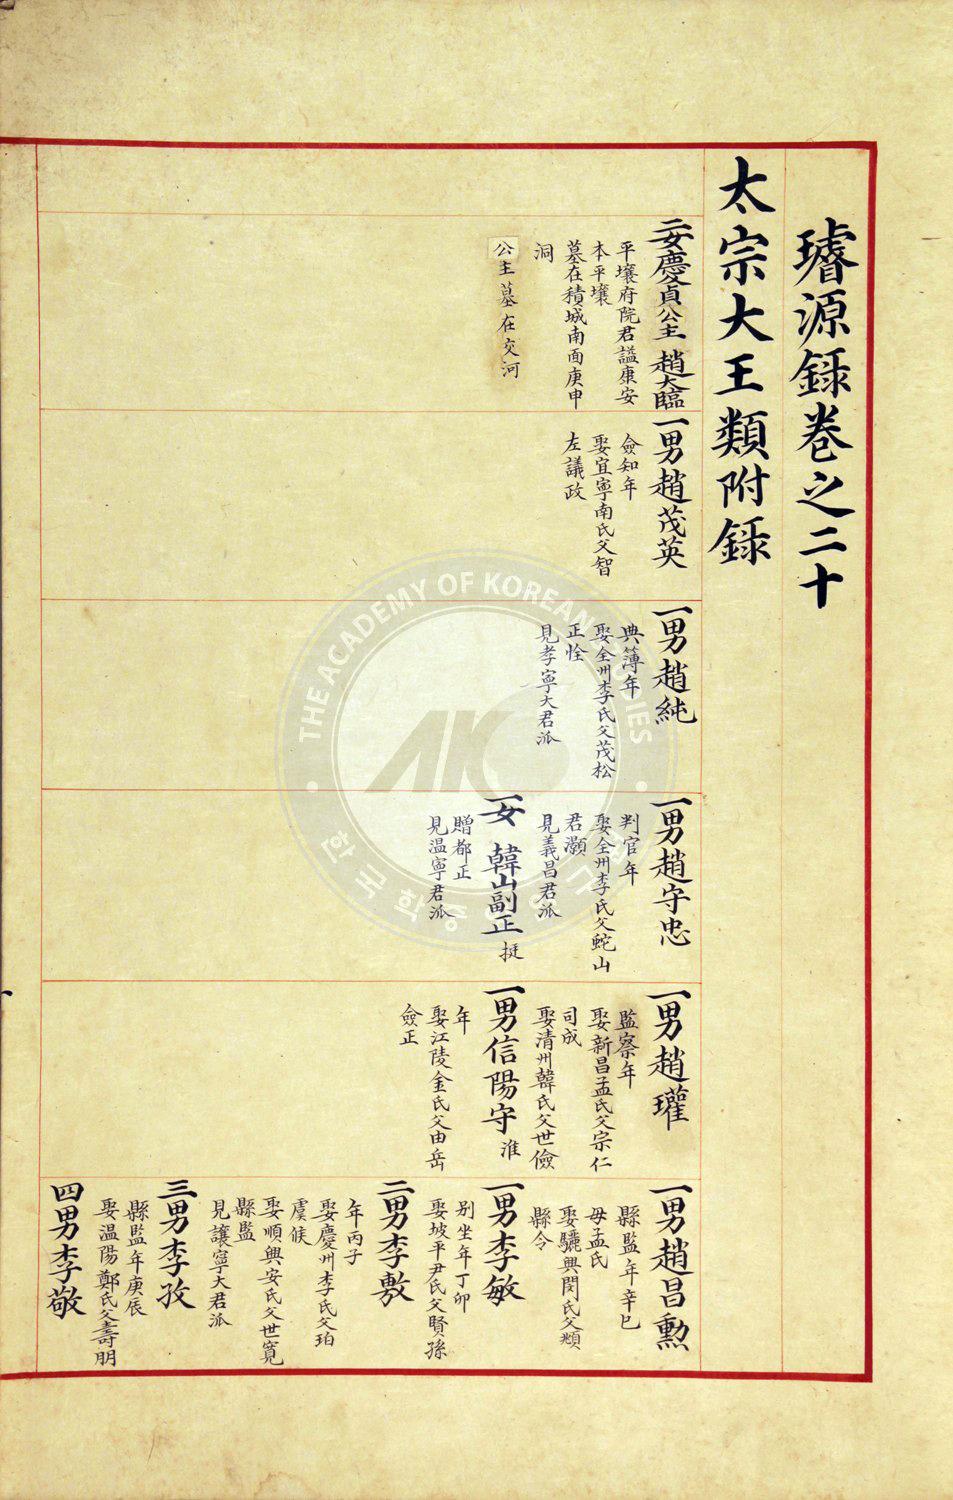 璿源錄卷之二十
太宗大王類附錄
二女慶貞公主 趙大臨
平壤府院君謚康安
本平壤
墓在積城南面庚申
洞
公主墓在交河
一男趙茂英
僉知年
娶宜寧南氏父智
左議政
一男趙純
典簿年
娶全州李氏父茂松
正恮
見孝寧大君派
一男趙守忠
判官年
娶全州李氏父蛇山
君灝
見義昌君派
一女 韓山副正 挺
贈都正
見溫寧君派
一男趙瓘
監察年
娶新昌孟氏父宗仁
司成
娶清州韓氏父世儉
一男信陽守 淮
年
娶江陵金氏父由岳
僉正
一男趙昌勲
縣監年辛巳
母孟氏
娶驪興閔氏父頫
縣令
一男李敏
別坐年丁卯
娶坡平尹氏父賢孫
二男李敷
年丙子
娶慶州李氏父珀
虞候
娶順興安氏父世寬
縣監
見讓寧大君派
三男李孜
縣監年庚辰
娶溫陽鄭氏父壽朋
四男李敬
THE ACADEMY OF KOREAN STUDIES
한국학중앙연구원
AKS